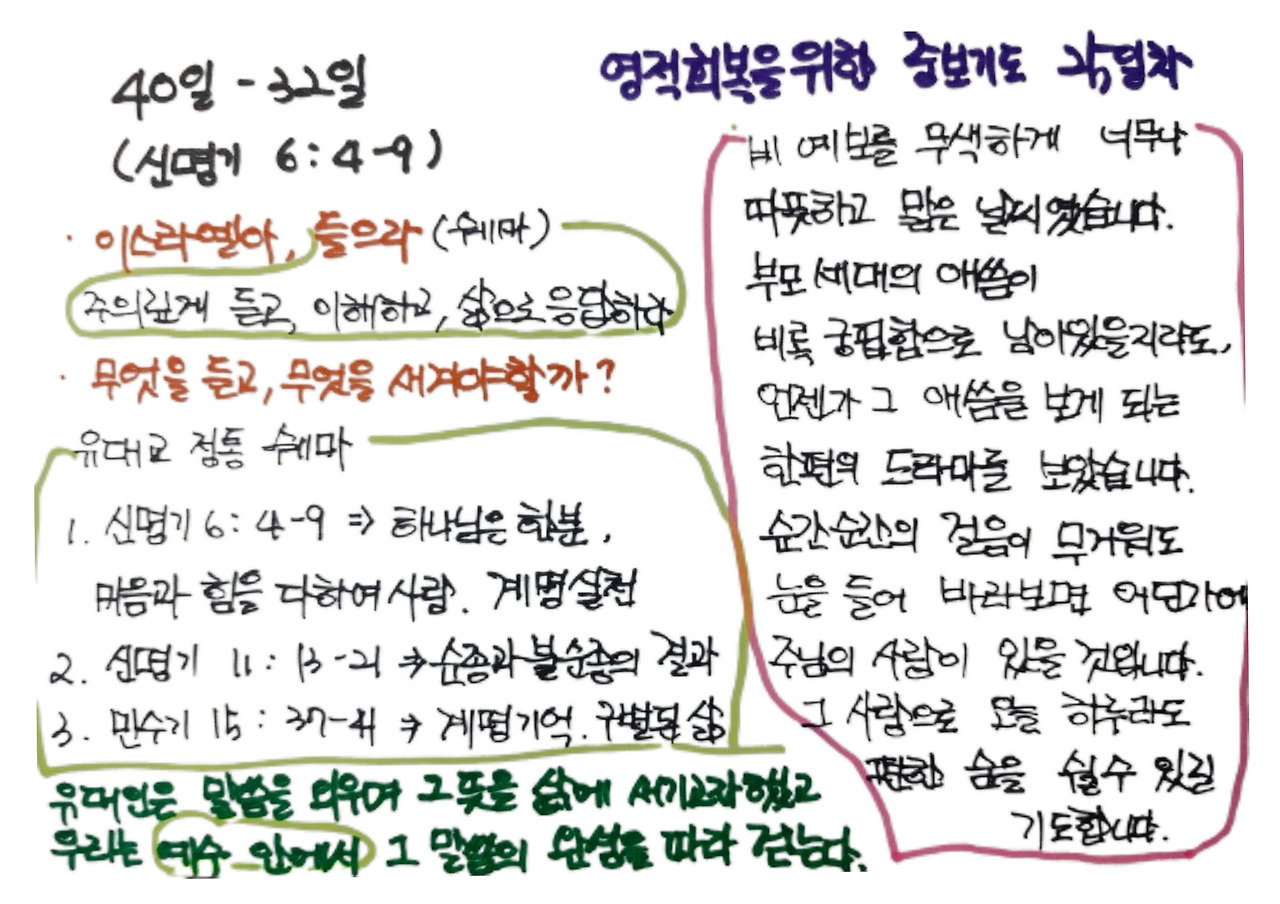 40일 - 32일
(신명기 6:4-9)
· 이스라엘아, 들으라 (쉐마)
주의깊게 듣고, 이해하고, 삶으로 응답하라
· 무엇을 듣고, 무엇을 새겨야할까?
유대교 정통 쉐마
1. 신명기 6:4-9 ⇒ 하나님은 한분,
마음과 힘을 다하여 사랑. 계명실천
2. 신명기 11:13-21 ⇒ 순종과 불순종의 결과
3. 민수기 15:37-41 ⇒ 계명기억. 구별된 삶
유대인은 말씀을 외우며 그 뜻을 삶에 새기고자 했고
우리는 예수 안에서 그 말씀의 완성을 따라 걷는다.
영적회복을 위한 중보기도
비 예보를 무색하게 너무나
따뜻하고 맑은 날씨였습니다.
부모세대의 애씀이
비록 궁핍함으로 남아있을지라도,
언젠가 그 애씀을 보게 되는
한편의 드라마를 보았습니다.
순간순간의 걸음이 무거워도
눈을 들어 바라보면 어딘가에
주님의 사랑이 있을 것입니다.
그 사랑으로 오늘 하루라도
편한 숨을 쉴수 있길
기도합니다.